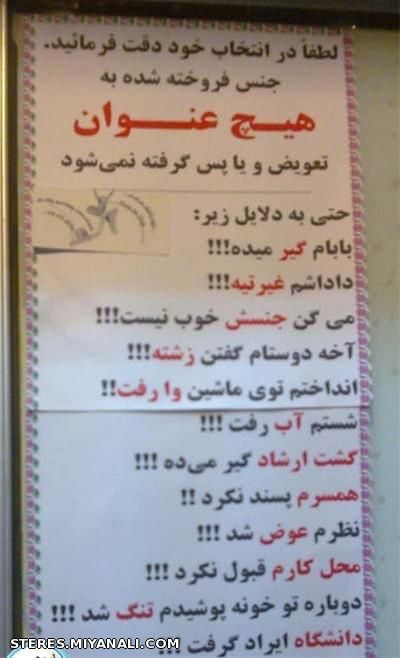 لطفاً در انتخاب خود دقت فرمائید.
جنس فروخته شده به
هیــچ عنــــوان
تعویض و یا پس گرفته نمی‌شود
حتی به دلایل زیر:
بابام گیر میده!!!
داداشم غیرتیه!!!
می گن جنسش خوب نیست!!!
آخه دوستام گفتن زشته!!!
انداختم توی ماشین وا رفت!!
شستم آب رفت !!!
گشت ارشاد گیر می‌ده !!!
همسرم پسند نکرد !!
نظرم عوض شد !!!
محل کارم قبول نکرد !!!
دوباره تو خونه پوشیدم تنگ شد !!!
دانشگاه ایراد گرفت !!!
STERES.MIYANALI.COM